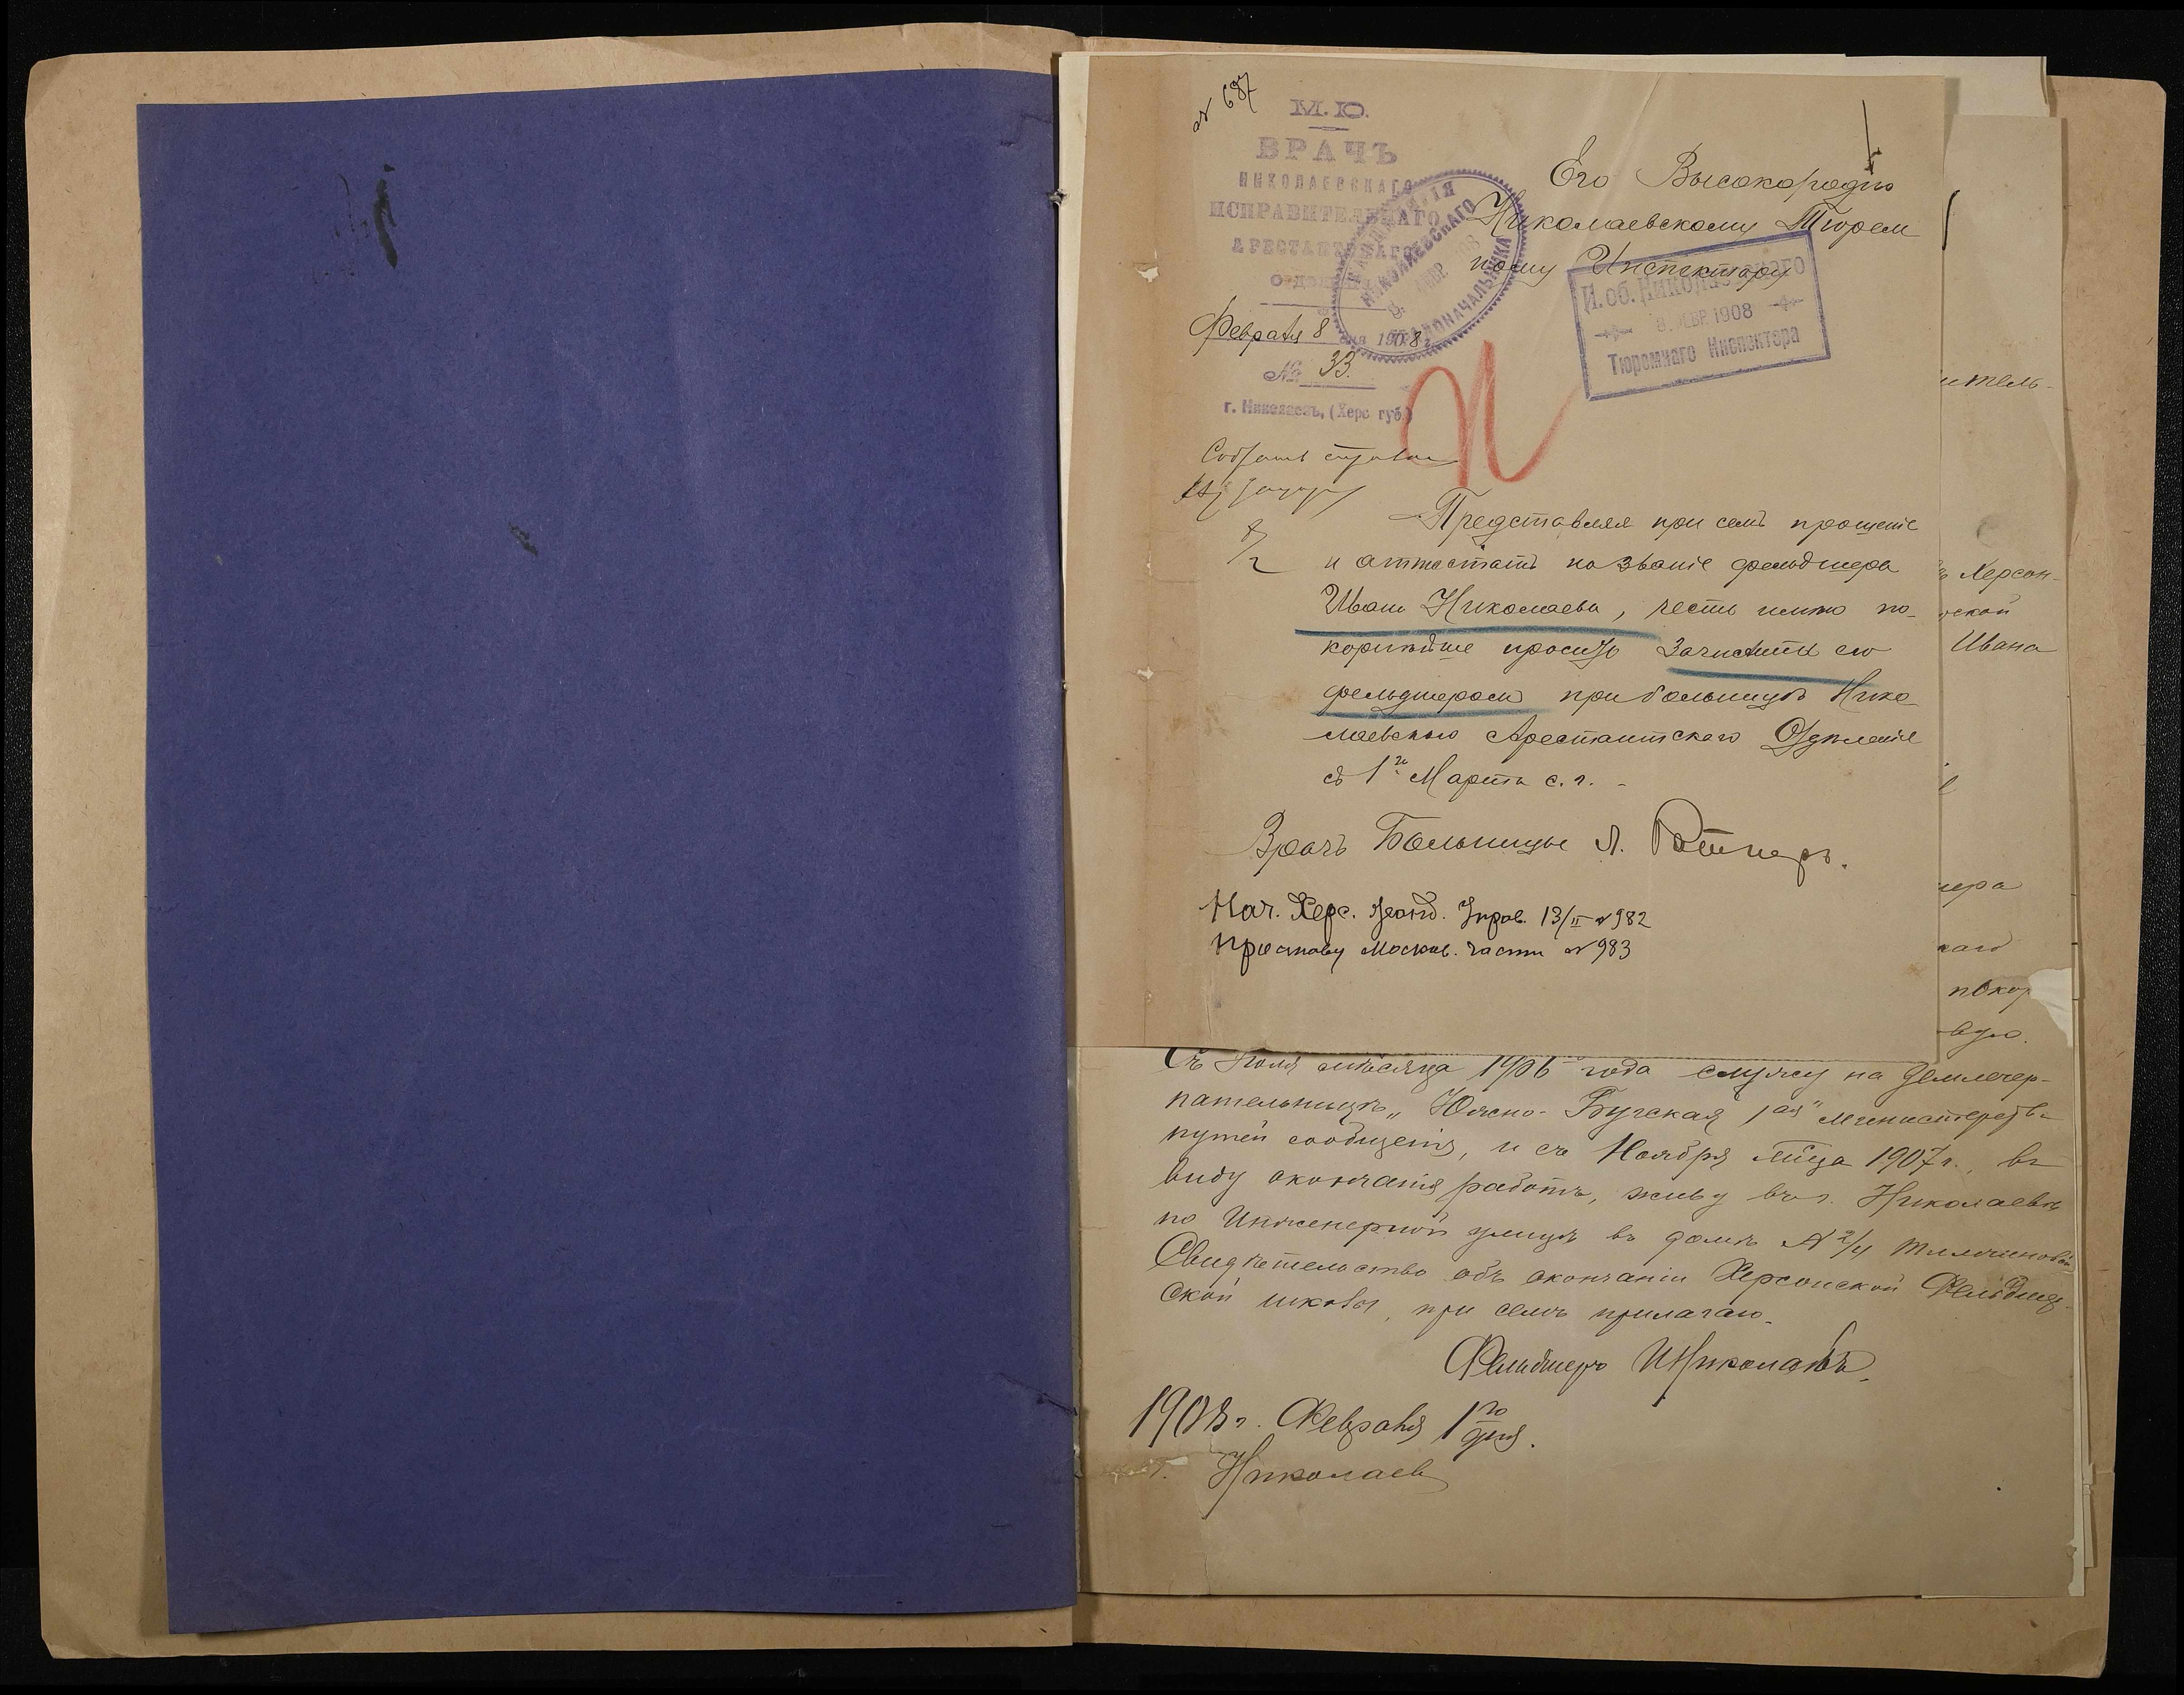 № 687
М. Ю.
ВРАЧЪ
НИКОЛАЕВСКАГО
ИСПРАВИТЕЛЬНАГО
АРЕСТАНТСКАГО
ОТДѢЛЕНІЯ
КАНЦЕЛЯРІЯ
НИКОЛАЕВСКАГО
8 ФЕВР 1908
ГРАДОНАЧАЛЬНИКА
Февраля 8 дня 1908 г.
№ 33.
г. Николаевъ, (Херс губ.)
Его Высокородію
Николаевскому Тюрем
ному Инспектору
И. об. Николаевскаго
8. ФЕВР. 1908
Тюремнаго Инспектора
Собрать справки
8/2
Представляя при семъ прошеніе
и аттестатъ на званіе фельдшера
Ивана Николаева, честь имѣю по-
корнѣйше просить зачислить его
фельдшеромъ при больницѣ Нико
лаевского Арестантского Отдѣленія
съ 1го Марта с. г. -
Врачъ Больницы Л. Ратнеръ.
Нач. Херс. Жанд. Управ. 13/II № 982
Приставу Москов. части № 983
итель-
Херсон-
ской
Ивана
мера
каго
покор
вую.
Съ Іюля мѣсяца 1906 года служу на Землечер-
пательницѣ „Южно-Бугская 1ая" Министерства
путей сообщенія, и съ Ноября м-ца 1907 г., въ
виду окончанія работъ, живу въ г. Николаевѣ
по Инженерной улицѣ въ домѣ № 2/4
Свидѣтельство объ окончаніи Херсонской Фельдшер-
ской школы, при семъ прилагаю.
Фельдшеръ И Николаевъ
1908 г. Февраля 1го дня.
г. Николаев